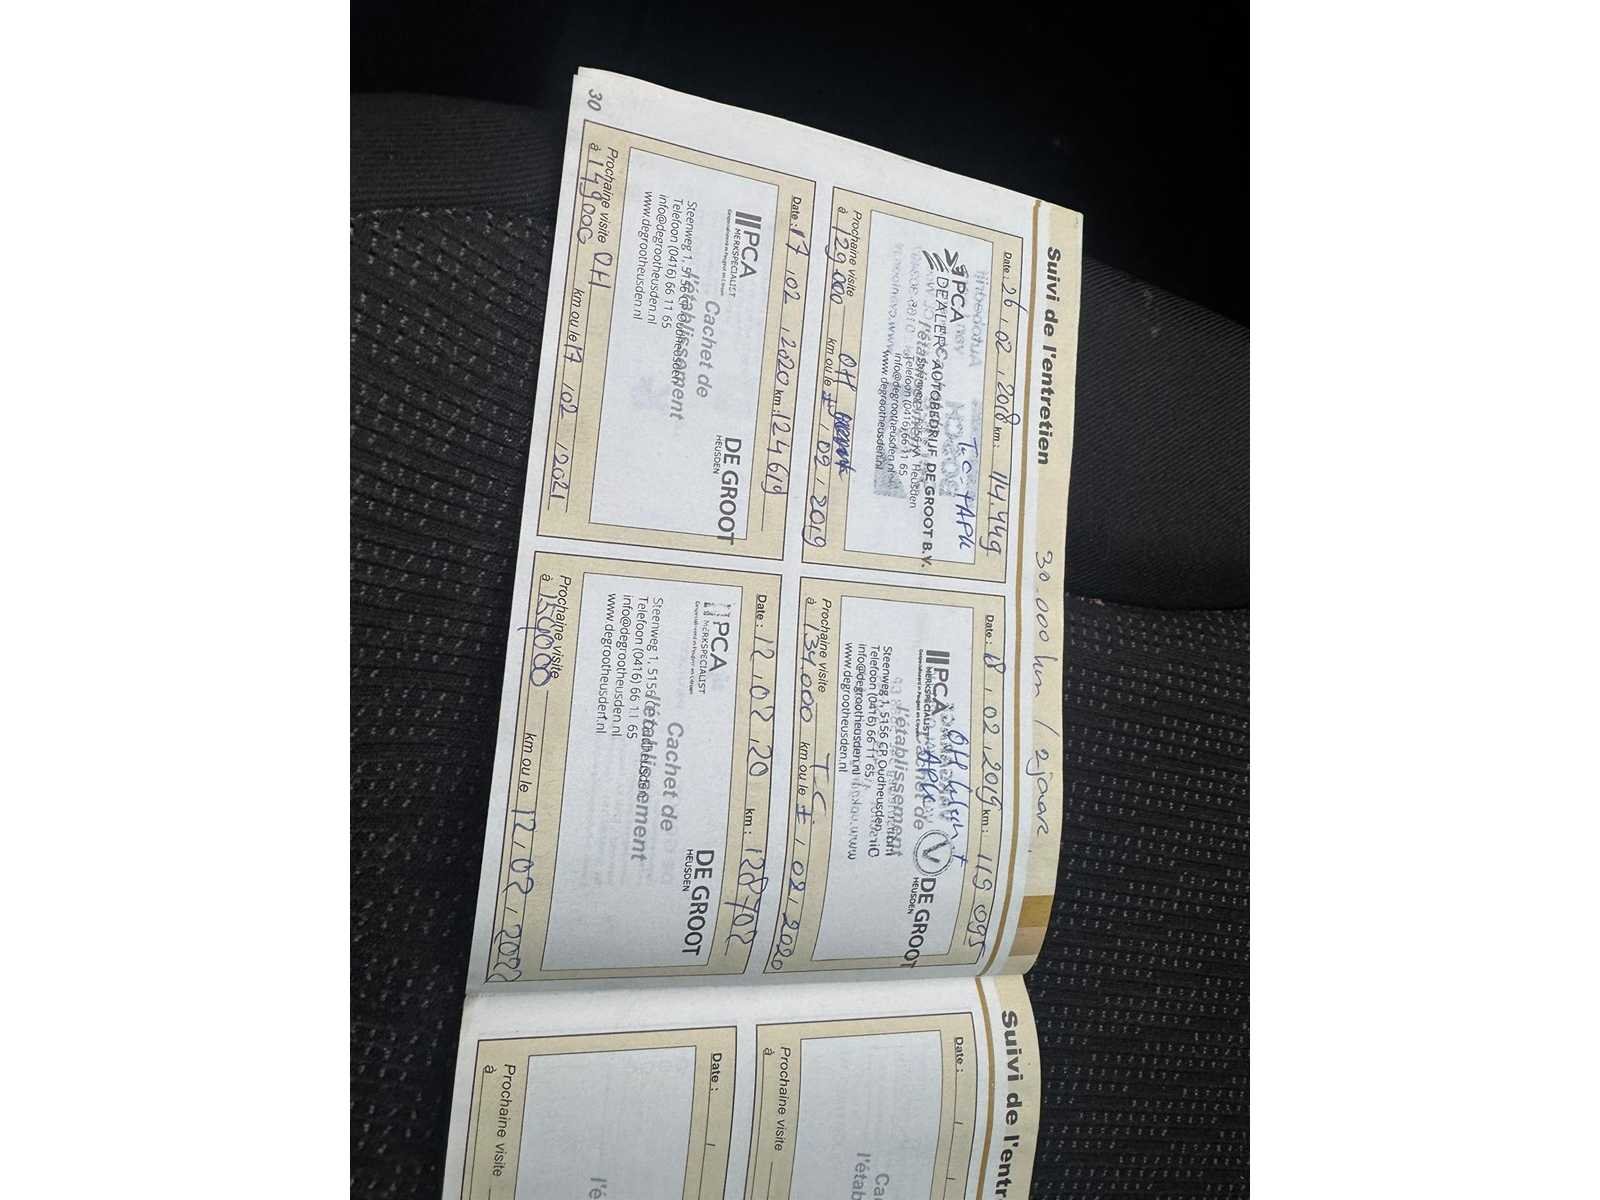 Suivi de l'entretien
30.000 km / 2 jaar
Date : 26 , 02 , 2018 km : 114.449
T.C. + APK
PCA
DEALER AUTOBEDRIJF DE GROOT B.V.
Heusden
Telefoon (0416) 66 11 65
info@degrootheusden.nl
www.degrootheusden.nl
Prochaine visite OH
à 129.000 km ou le ± , 09 , 2019
Date : 18 , 02 , 2019 km : 119 095
PCA
MERKSPECIALIST
DE GROOT
HEUSDEN
OH
APK
V
Steenweg 1, 5156 CP Oudheusden
Telefoon (0416) 66 11 65
info@degrootheusden.nl
www.degrootheusden.nl
l'établissement
Prochaine visite T.C.
à 134.000 km ou le ± , 02 , 2020
Date : 17 , 02 , 2020 km : 124619
PCA
MERKSPECIALIST
DE GROOT
HEUSDEN
Cachet de
l'établissement
Steenweg 1, 5156 CP Oudheusden
Telefoon (0416) 66 11 65
info@degrootheusden.nl
www.degrootheusden.nl
Prochaine visite OH
à 149000 km ou le 17 , 02 , 2021
Date : 12 , 02 , 20 km : 128702
PCA
MERKSPECIALIST
DE GROOT
HEUSDEN
Cachet de
l'établissement
Steenweg 1, 5156 CP Oudheusden
Telefoon (0416) 66 11 65
info@degrootheusden.nl
www.degrootheusden.nl
Prochaine visite
à km ou le 12 , 02 , 2022
30
Suivi de l'entr
Date :
Prochaine visite
à
Date :
Prochaine visite
à